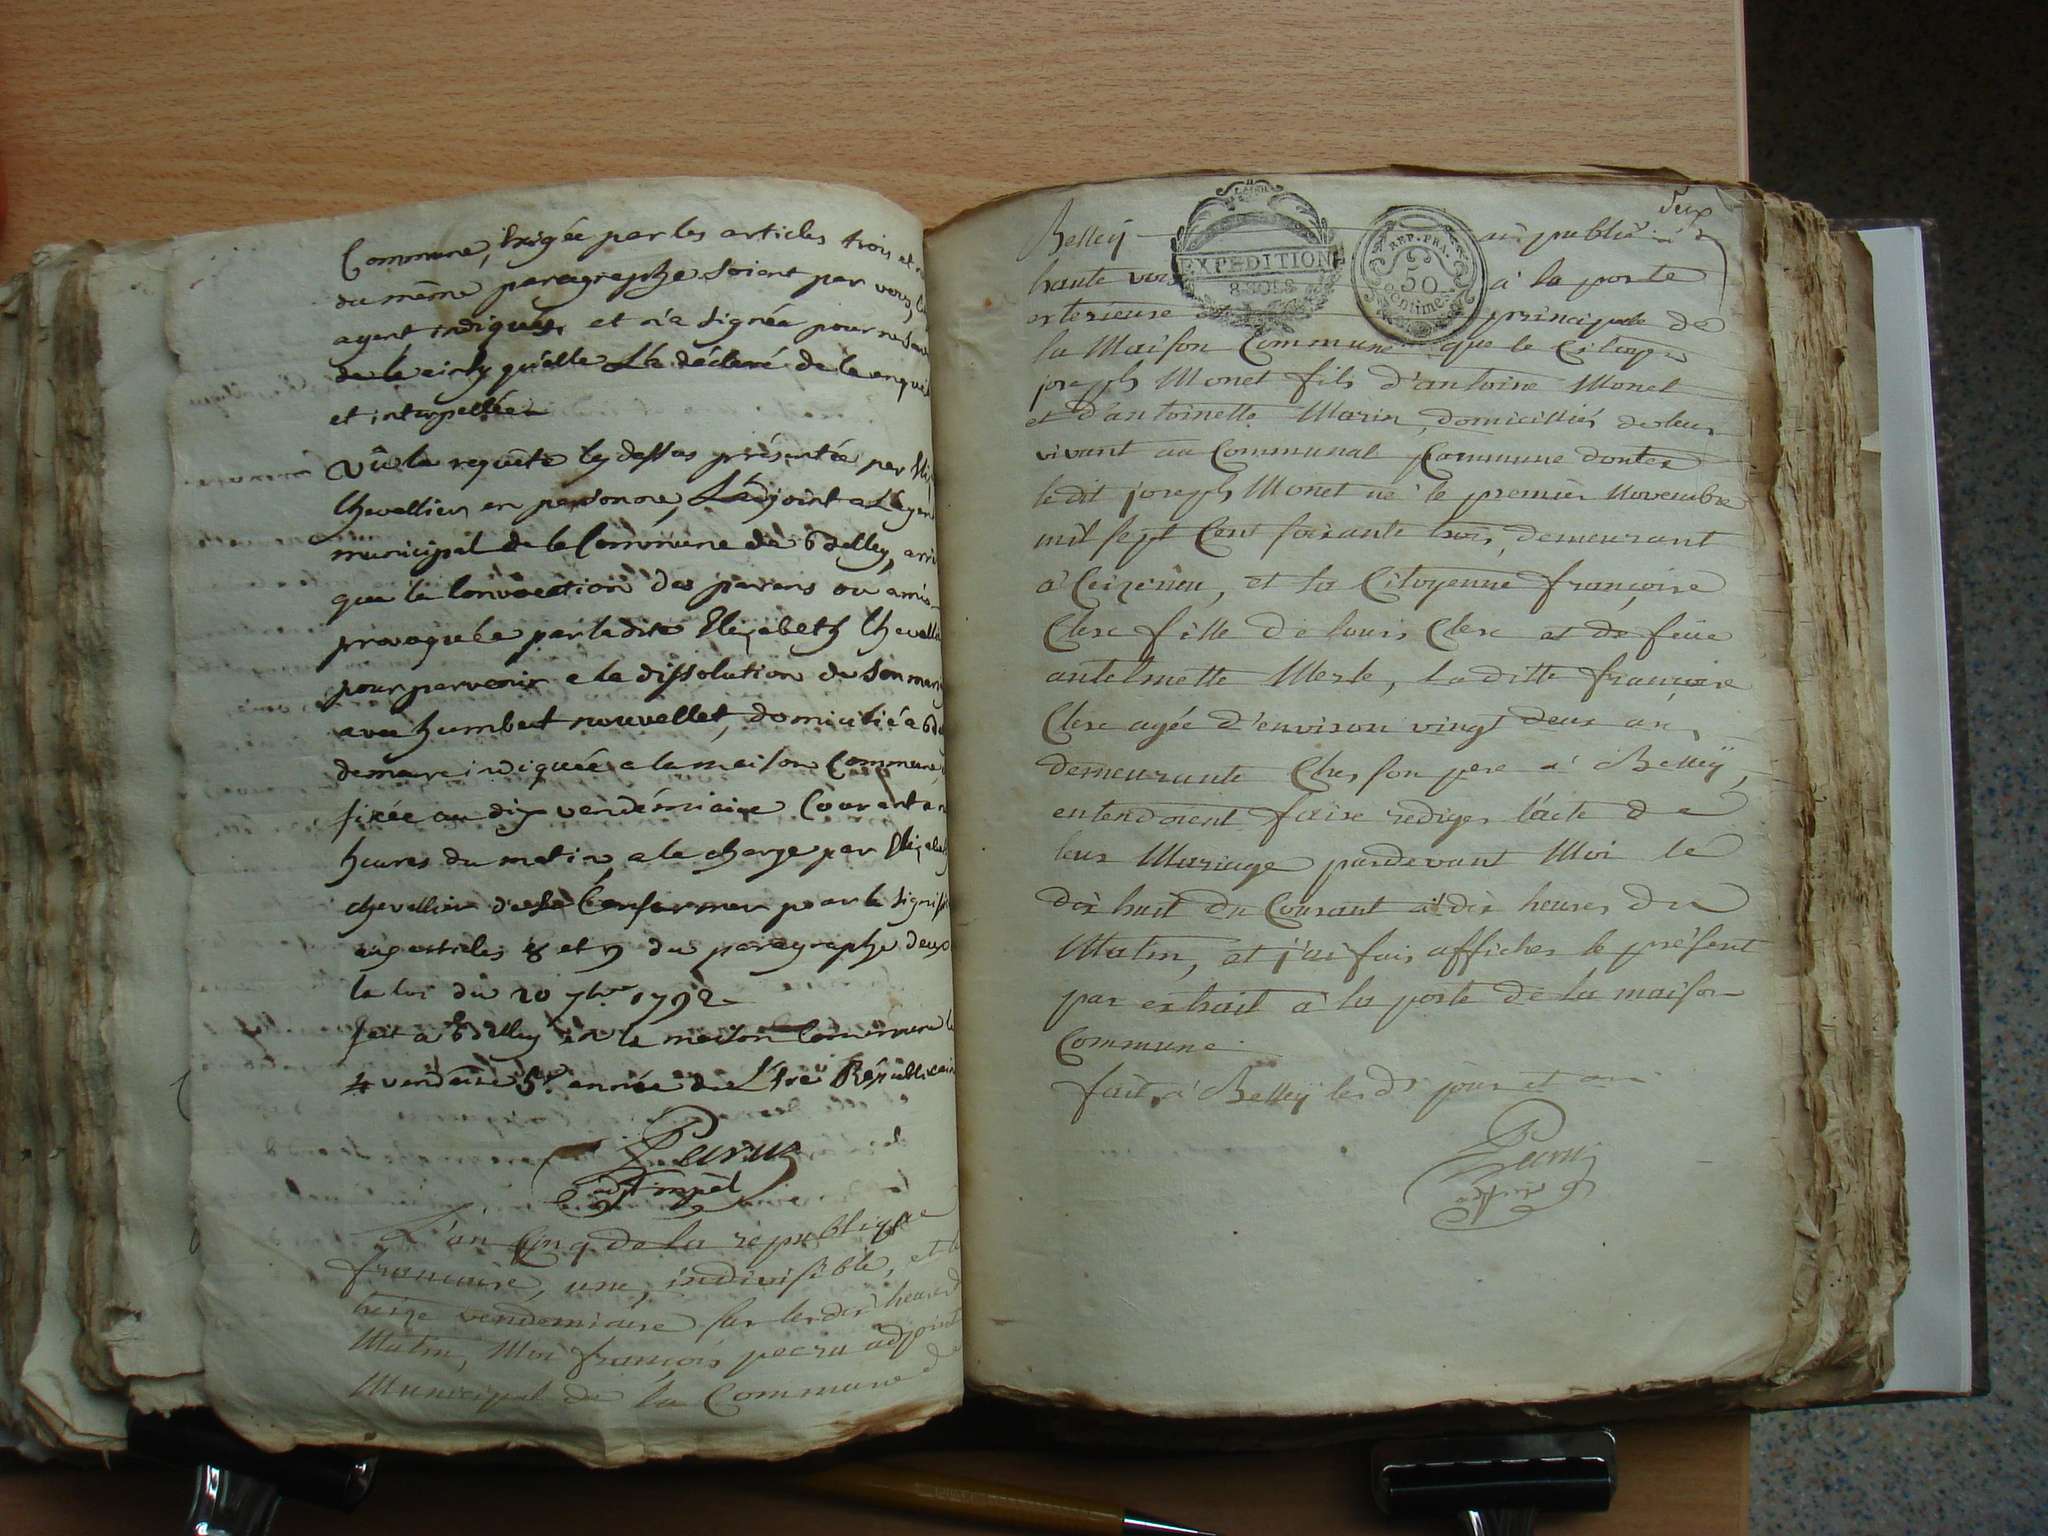 Commune, Exigée par les articles trois et
du même paragraphe soient par vous,
ayent indiqués, et n'a signée pour ne
de le ainsy qu'elle L'a déclaré de le enquise
et interpellée
Vû la requête cy dessus présentée par Eliz
Chevallier en personne, L'adjoint a L'agent
municipal de la Commune de Belley,
que la Convocation des parens ou amis
provoquée par la dite Elizabeth Chevallier
pour parvenir a la dissolution de son mari
avec humbert nouvellet, domicilié a
demeure indiquée a la maison Commune
fixée au dix vendémiaire Courant
heures du matin, a la charge par Elizabeth
chevallier de se Conformer pour la signif
aux articles 8 et 9 du paragraphe deux
la loi du 20 7bre 1792
fait a Belley en la maison Commune le
4 vendre 5e année de L'ère Républicaine
Pecru
adjt mpel
L'an Cinq de la republique
francaise, une, indivisible, et le
treize vendemiaire sur les dix heures
Matin, Moi françois pecru adjoint
Municipal de la Commune de
deux
Belley ai publié à
EXPEDITION
8 SOLS
REP. FRA.
50
Centimes
haute voix à la porte
exterieure et principale de
la Maison Commune que le Citoyen
joseph Monet fils d'antoine Monet
et d'antoinette Marin, domiciliés de leur
vivant au Communal Commune
ledit joseph Monet né le premier Novembre
mil sept Cent soixante trois, demeurant
à Ceizerieu, et la Citoyenne françoise
Clerc fille de louis Clerc et de feüe
antelmette Merle, la ditte françoise
Clerc agée d'environ vingt deux ans
demeurante Ches son pere à Belleÿ,
entendoient faire rediger l'acte de
leur Mariage pardevant Moi le
dix huit du Courant à dix heures du
Matin, et j'ai fais afficher le présent
par extrait à la porte de la maison
Commune
fait à Belleÿ les ds jour et an
Pecru
adjoint